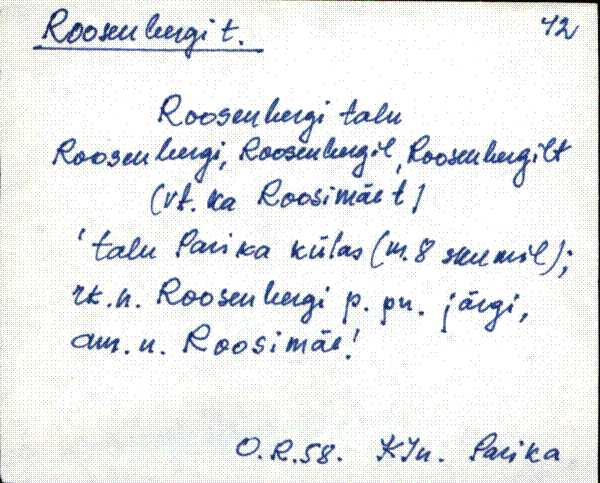 Roosenbergi t. 42
Roosenbergi talu
Roosenbergi, Roosenbergil, Roosenbergilt
(vt. ka Roosimäe t)
'talu Parika külas (m. 8
rk.n. Roosenbergi p. pn. järgi,
am. n. Roosimäe!
O.R.58. KJn. Parika